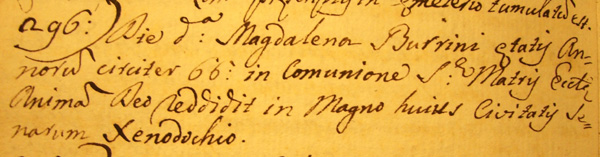 in cemeterio tumulatũ est.
296: Die d.ª Magdalena Burrini etatis An-
norũ circiter 66: in Comunione S.ę Matris Eccłę
Animã Deo reddidit in Magno huius Civitatis Se-
narum Xenodochio.